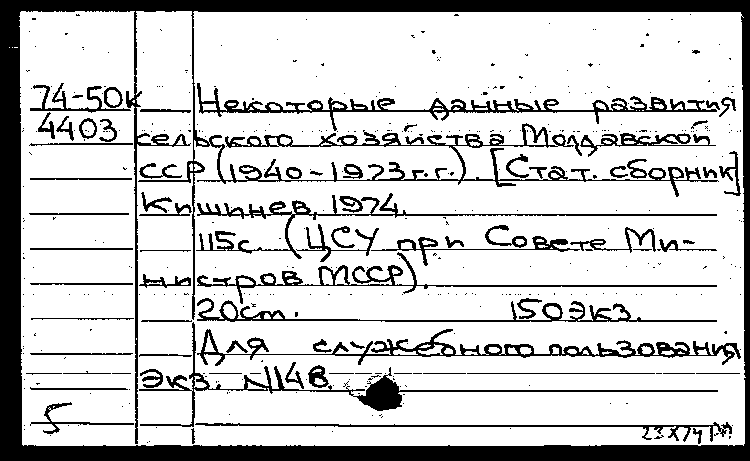 74-50к Некоторые данные развития
4403 сельского хозяйства Молдавской
ССР (1940-1973 г.г.). [Стат. сборник]
Кишинев, 1974.
115с. (ЦСУ при Совете Ми-
нистров МССР).
20см. 150экз.
Для служебного пользования
Экз. №148.
5
23 X 74